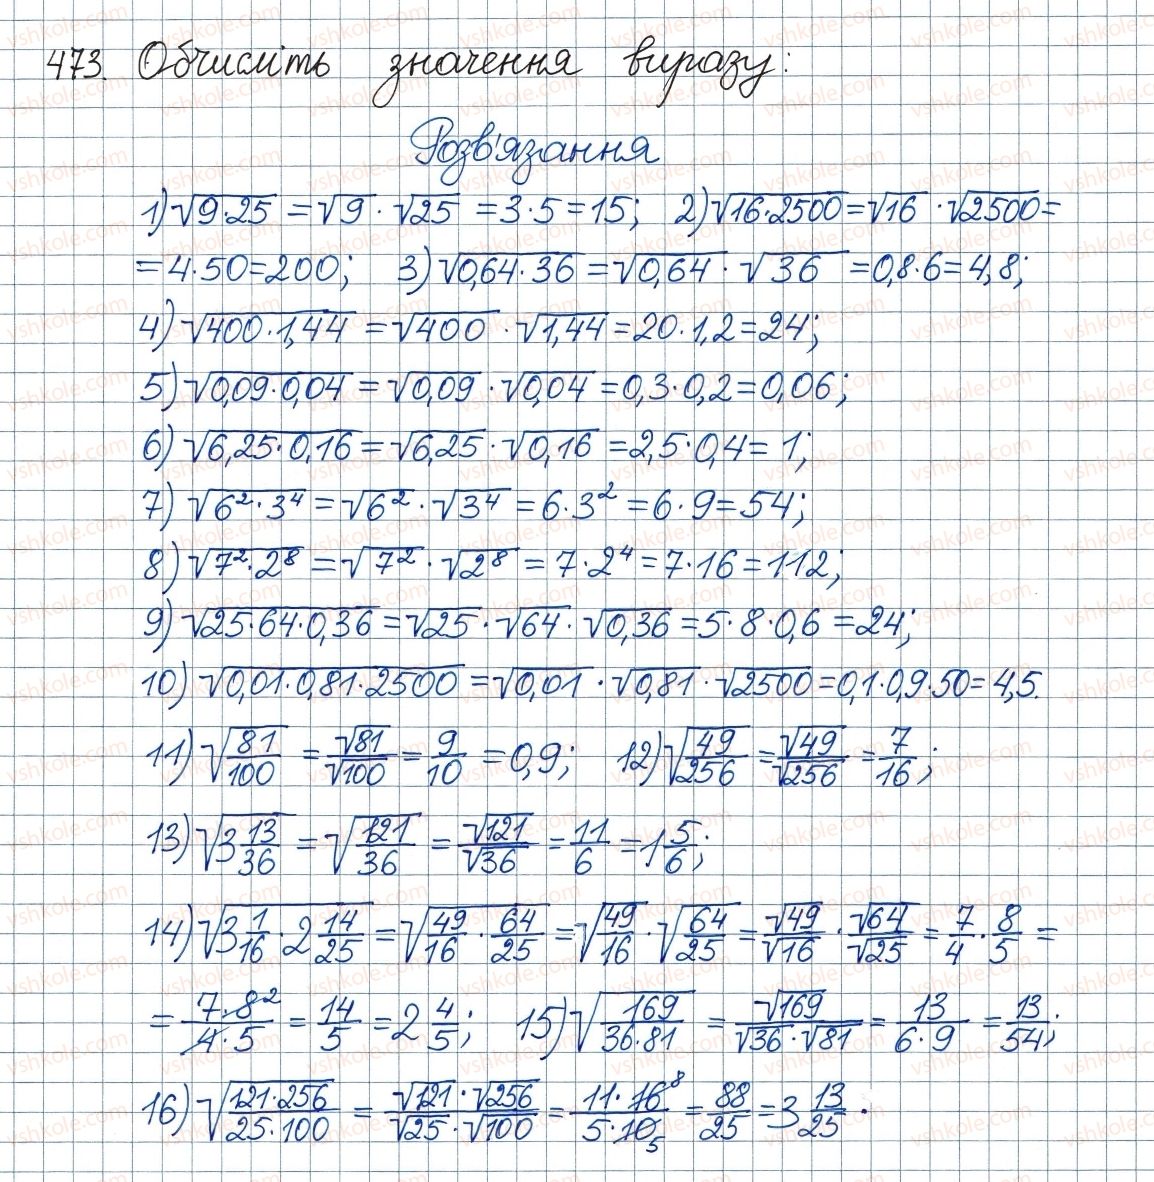 473. Обчисліть значення виразу:
Розв'язання
1) √(9·25) = √9 · √25 = 3·5 = 15; 2) √(16·2500) = √16 · √2500 =
= 4·50 = 200; 3) √(0,64·36) = √0,64 · √36 = 0,8·6 = 4,8;
4) √(400·1,44) = √400 · √1,44 = 20·1,2 = 24;
5) √(0,09·0,04) = √0,09 · √0,04 = 0,3·0,2 = 0,06;
6) √(6,25·0,16) = √6,25 · √0,16 = 2,5·0,4 = 1;
7) √(6²·3⁴) = √6² · √3⁴ = 6·3² = 6·9 = 54;
8) √(7²·2⁸) = √7² · √2⁸ = 7·2⁴ = 7·16 = 112;
9) √(25·64·0,36) = √25 · √64 · √0,36 = 5·8·0,6 = 24;
10) √(0,01·0,81·2500) = √0,01 · √0,81 · √2500 = 0,1·0,9·50 = 4,5.
11) √(81/100) = √81/√100 = 9/10 = 0,9; 12) √(49/256) = √49/√256 = 7/16;
13) √(3 13/36) = √(121/36) = √121/√36 = 11/6 = 1 5/6;
14) √(3 1/16 · 2 14/25) = √(49/16 · 64/25) = √(49/16) · √(64/25) = √49/√16 · √64/√25 = 7/4 · 8/5 =
= (7·8²)/(4·5) = 14/5 = 2 4/5; 15) √(169/(36·81)) = √169/(√36·√81) = 13/(6·9) = 13/54;
16) √((121·256)/(25·100)) = (√121·√256)/(√25·√100) = (11·16⁸)/(5·10₅) = 88/25 = 3 13/25.